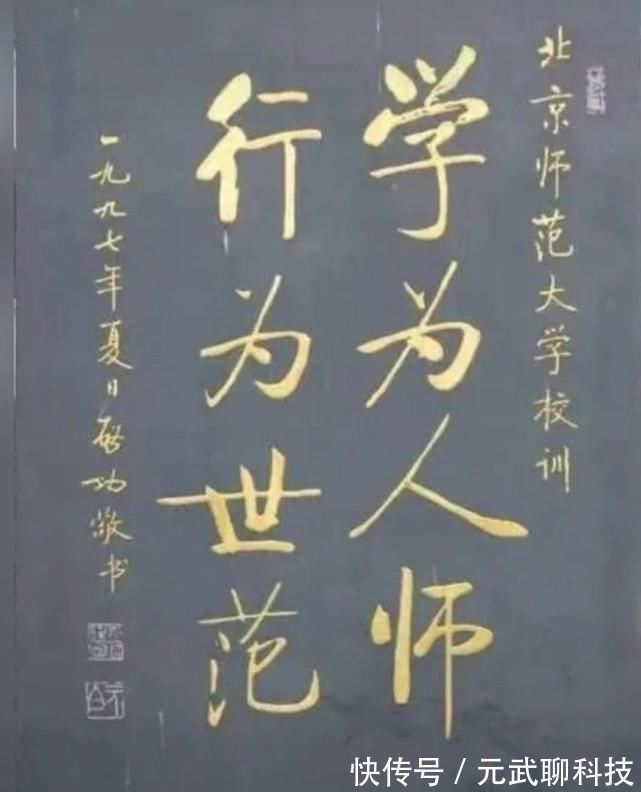 北京师范大学校训
学为人师
行为世范
一九九七年夏日启功敬书
快传号 / 元武聊科技